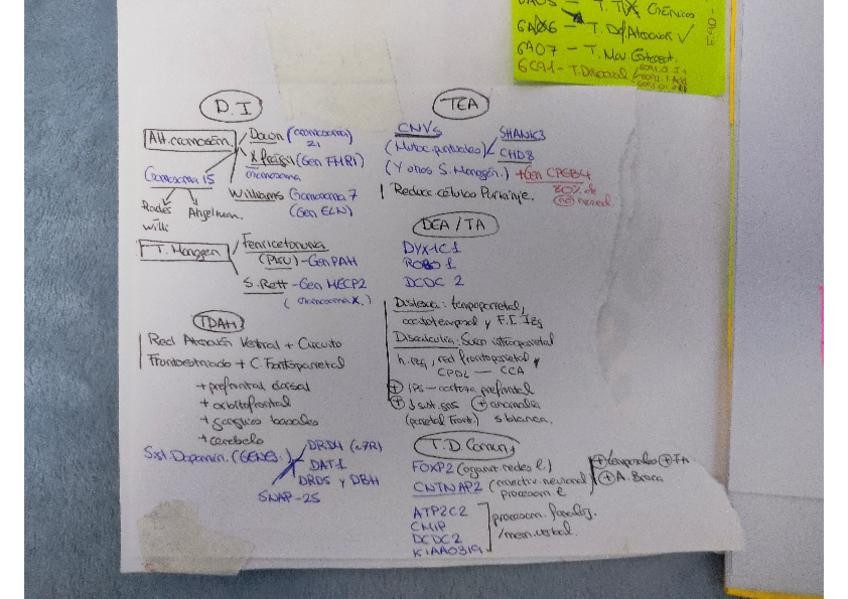 6A05 - T. Tix Crónicos
6A06 - T. Df. Atención ✓
6A07 - T. Mov. Estereot.
6C91 - T. Disocial
F.90 -
D.I
Alt. cromosóm.
Down (cromosoma 21
X frágil (Gen FMR1)
cromosoma
Cromosoma 15
Williams Cromosoma 7
(Gen ELN)
Prader Willi
Angelman.
T. Monogen
Fenilcetonuria
(PKU) - Gen PAH
S. Rett - Gen MECP2
(cromosoma X.)
TDAH
Red Atención Ventral + Circuito
Frontoestriado + C. Frontoparietal
+ prefrontal dorsal
+ orbitofrontal
+ ganglios basales
+ cerebelo
Sist. Dopamin. (GENES:
DRD4 (r7R)
DAT1
DRD5 y DBH
SNAP-25
TEA
CNVs
(Mutac. puntuales)
SHANK3
CHD8
(Y otros S. Monogén.)
+ Gen CPEB4
80% de
no hered.
Reduce células Purkinje.
DEA / TA
DYX1C1
ROBO 1
DCDC 2
Dislexia: temporoparietal,
occitotemporal y F.I. Izq
Discalculia: Surco intraparietal
h. izq, red frontoparietal
CPDL — CCA
+ IPS - corteza prefrontal
+ ↓ sust. gris + anomalía
(parietal Front.) s. blanca.
T.D. Comun.
FOXP2 (organiz. redes l)
CNTNAP2 (conectiv. neuronal
procesam. l
+ temporales + FA
+ A. Broca
ATP2C2
CMIP
DCDC2
KIAA0319
procesam. fonológ.
/mem. verbal.